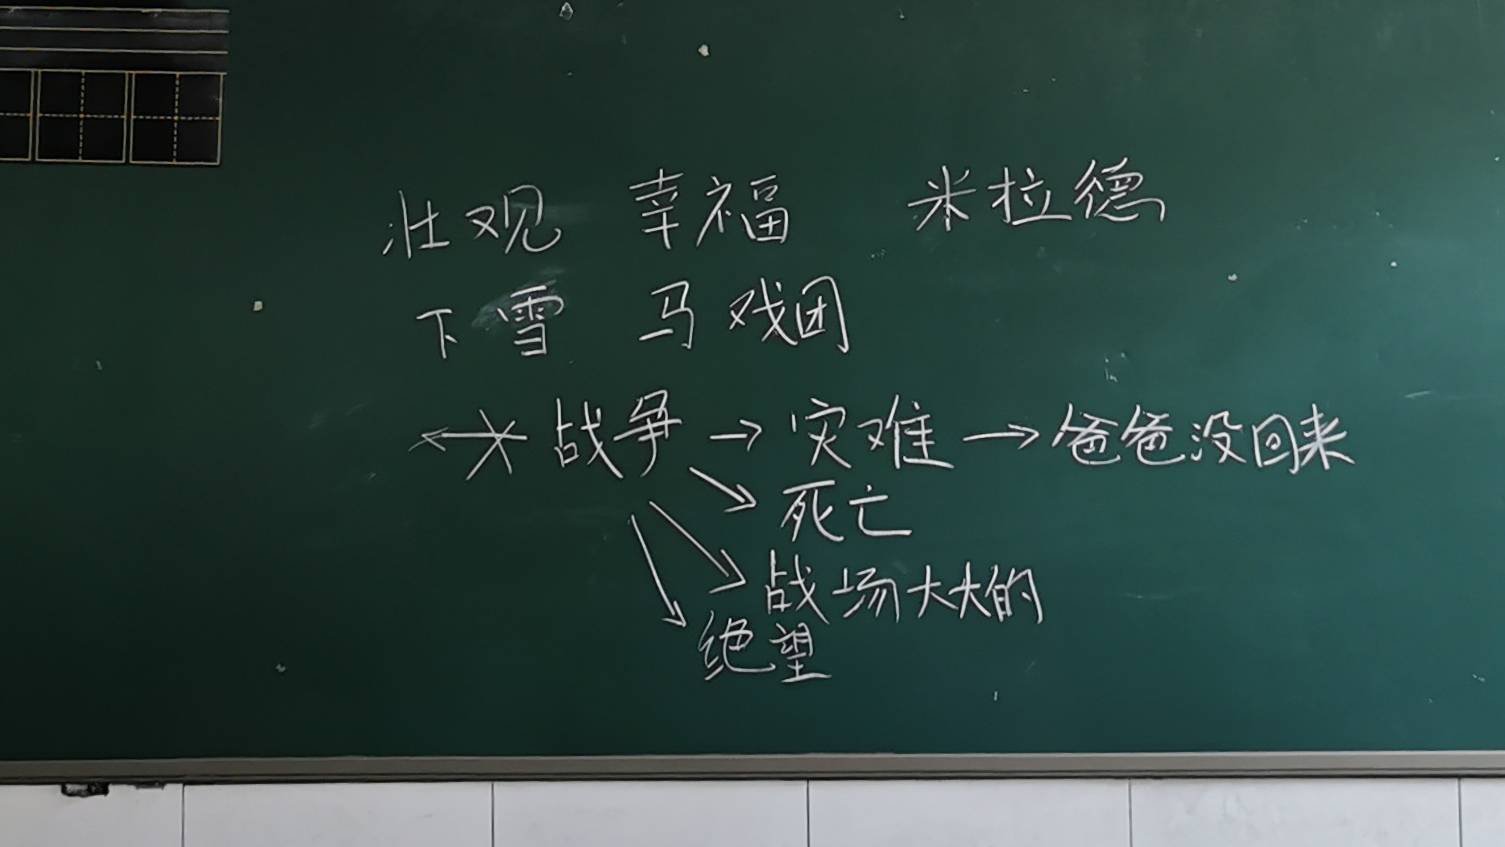 壮观 幸福 米拉德
下雪 马戏团
战争 → 灾难 → 爸爸没回来
死亡
战场大大的
绝望